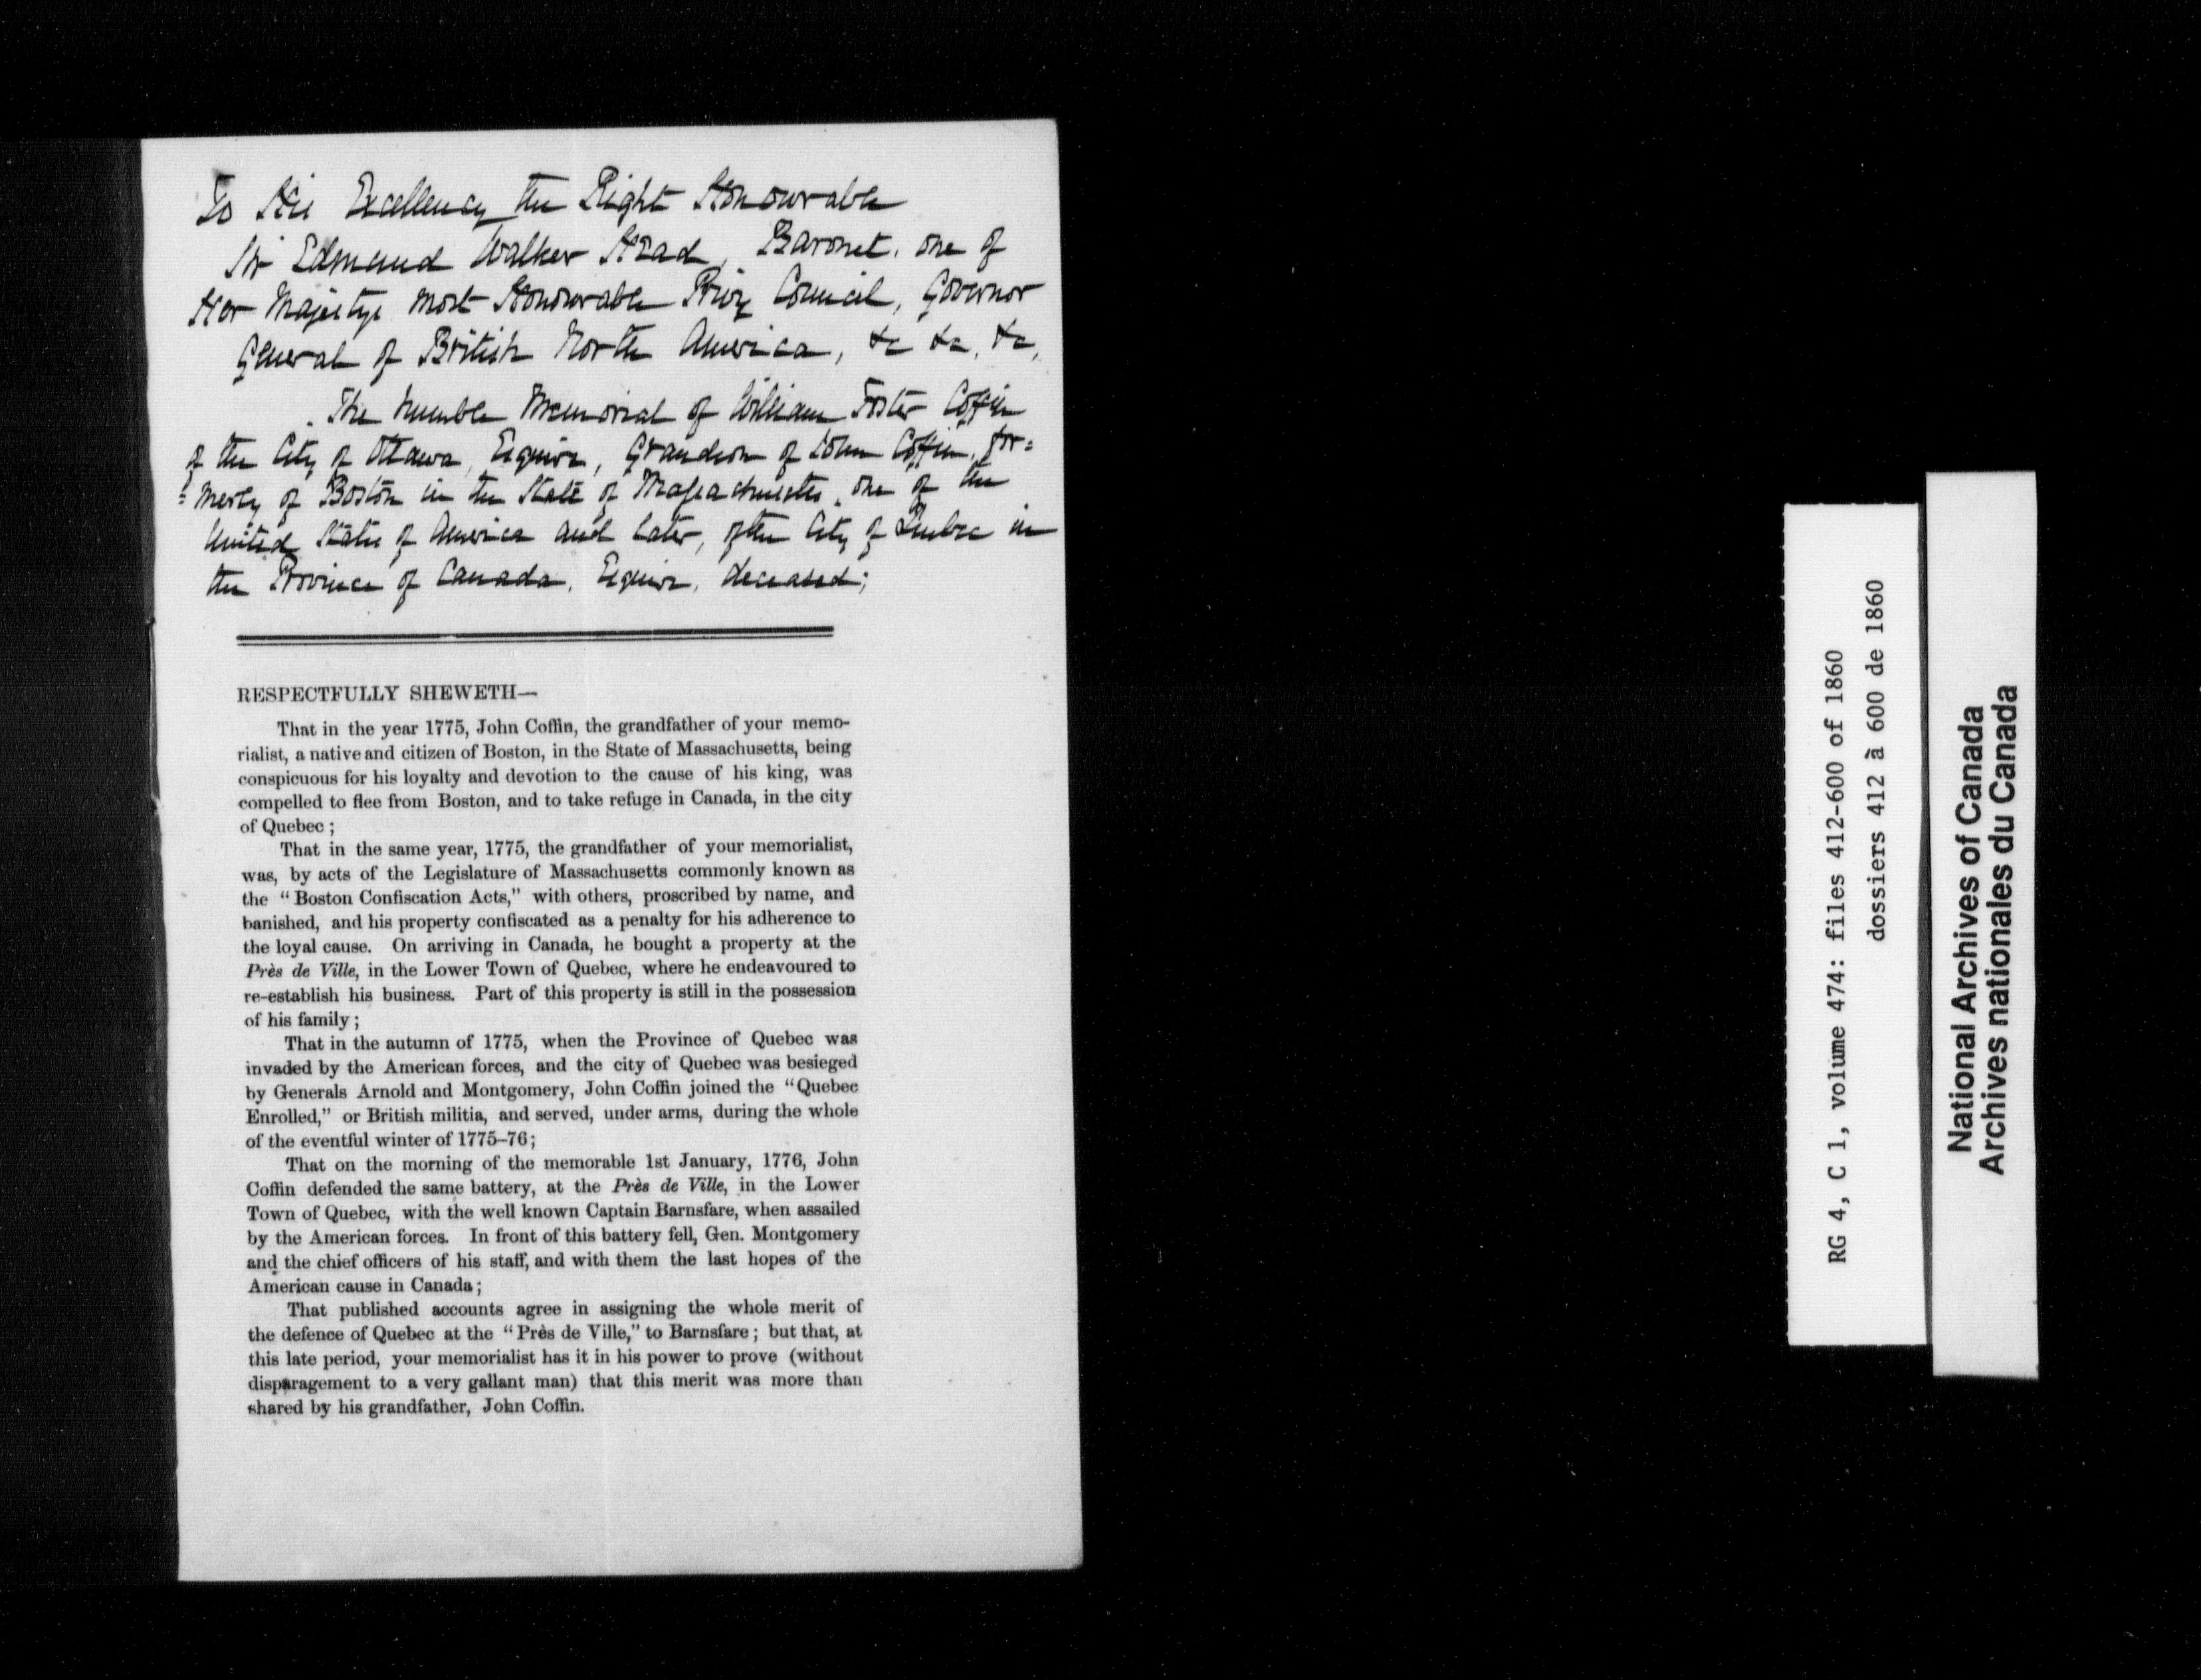 To His Excellency the Right Honourable
Sir Edmund Walker Head, Baronet, one of
Her Majestys most Honourable Privy Council, Governor
General of British North America, &c &c, &c,
The humble Memorial of William Foster Coffin
of the City of Ottawa, Esquire, Grandson of John Coffin, for=
=merly of Boston in the State of Massachusetts, one of the
United States of America and later, of the City of Quebec in
the Province of Canada, Esquire, deceased;
RESPECTFULLY SHEWETH—
That in the year 1775, John Coffin, the grandfather of your memo-
rialist, a native and citizen of Boston, in the State of Massachusetts, being
conspicuous for his loyalty and devotion to the cause of his king, was
compelled to flee from Boston, and to take refuge in Canada, in the city
of Quebec;
That in the same year, 1775, the grandfather of your memorialist,
was, by acts of the Legislature of Massachusetts commonly known as
the "Boston Confiscation Acts," with others, proscribed by name, and
banished, and his property confiscated as a penalty for his adherence to
the loyal cause. On arriving in Canada, he bought a property at the
Près de Ville, in the Lower Town of Quebec, where he endeavoured to
re-establish his business. Part of this property is still in the possession
of his family;
That in the autumn of 1775, when the Province of Quebec was
invaded by the American forces, and the city of Quebec was besieged
by Generals Arnold and Montgomery, John Coffin joined the "Quebec
Enrolled," or British militia, and served, under arms, during the whole
of the eventful winter of 1775–76;
That on the morning of the memorable 1st January, 1776, John
Coffin defended the same battery, at the Près de Ville, in the Lower
Town of Quebec, with the well known Captain Barnsfare, when assailed
by the American forces. In front of this battery fell, Gen. Montgomery
and the chief officers of his staff, and with them the last hopes of the
American cause in Canada;
That published accounts agree in assigning the whole merit of
the defence of Quebec at the "Près de Ville," to Barnsfare; but that, at
this late period, your memorialist has it in his power to prove (without
disparagement to a very gallant man) that this merit was more than
shared by his grandfather, John Coffin.
RG 4, C 1, volume 474: files 412-600 of 1860
dossiers 412 à 600 de 1860
National Archives of Canada
Archives nationales du Canada